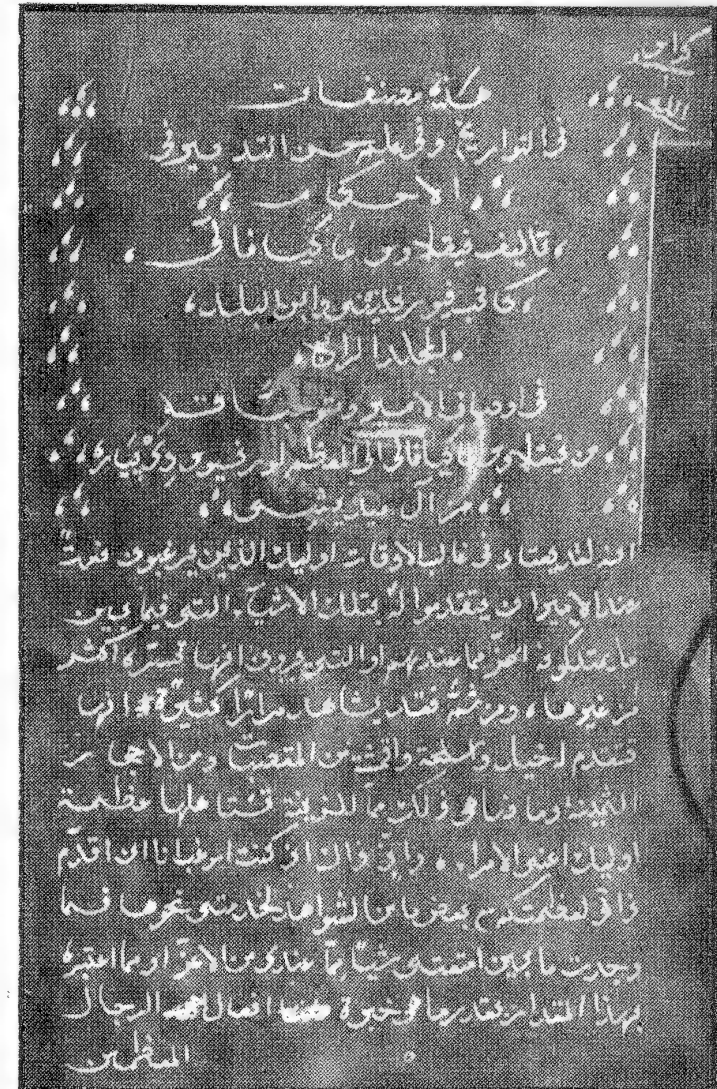 كراس
الله
هذه مصنفات
في التواريخ وفي علم حسن التدبير وفي
الاحكام
تاليف نيقلاوس ماكيافالي
كاتب فيورفلينتي وابن البلد
المجلد الرابع
في اوصاف الامير وتوسط قنه
من نيقلاوس ماكيافالي الى المعظم لورنسيوس
من آل ميديشي
انه لقد يعتاد في غالب الاوقات اوليك الذين يرغبون نعمةً
عند الامير ان يتقدموا له بتلك الاشيا التي فيما بين
ما يمتلكونه اعز مما عندهم او التي يروون انها تسره اكثر
من غيرها، ومن ثمة فقد يشاهد مراراً كثيرة انها
تتقدم له خيل واسلحة واقمشة من المقصبات ومن الاحجار
الثمينة وما ضاهى ذلك من الزينة تستاهلها عظمة
اوليك اعني الامرا. واني ذاك اذ كنت ارغب انا ان اقدم
ذاتي لعظمتكم مع بعض ما من الشواهد لخدمتي نحوها فما
وجدت ما بين امتعتي شياً مما عندي من الاعز او مما اعتبره
بهذا المقدار بقدر ما هو خبرة افعال الرجال
المعظمين